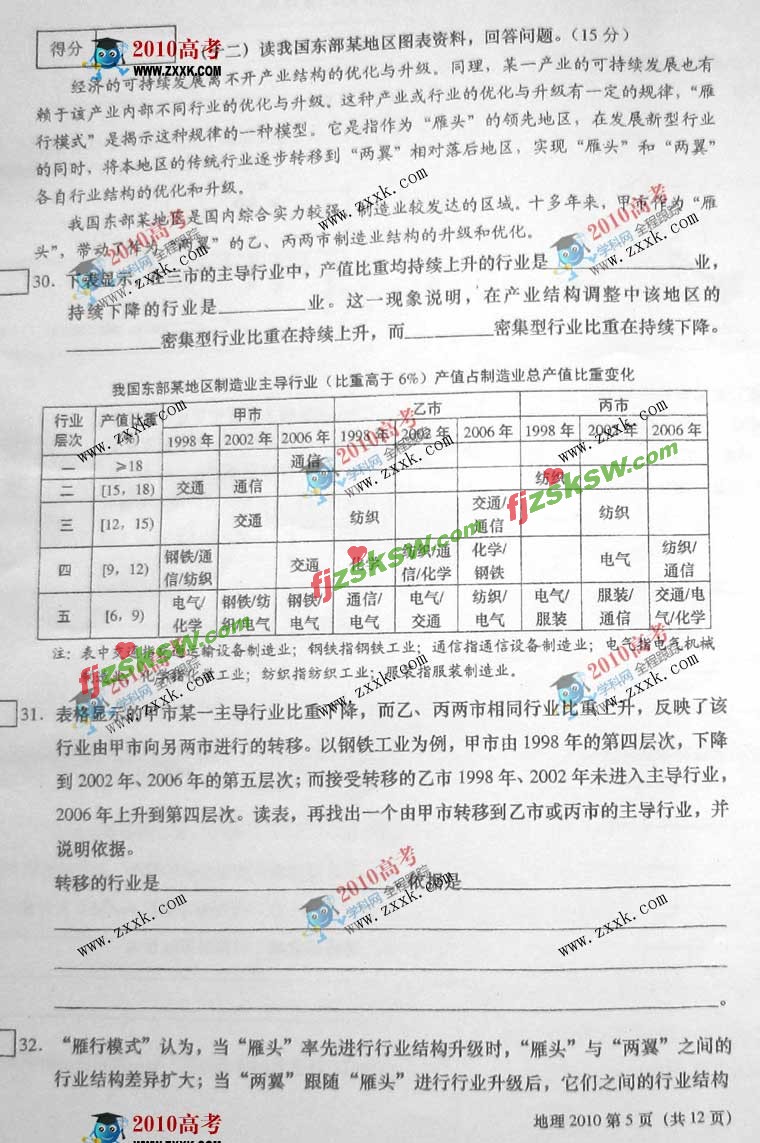 得分
2010高考
www.zxxk.com
二）读我国东部某地区图表资料，回答问题。（15分）
经济的可持续发展离不开产业结构的优化与升级。同理，某一产业的可持续发展也有
赖于该产业内部不同行业的优化与升级。这种产业或行业的优化与升级有一定的规律，“雁
行模式”是揭示这种规律的一种模型。它是指作为“雁头”的领先地区，在发展新型行业
的同时，将本地区的传统行业逐步转移到“两翼”相对落后地区，实现“雁头”和“两翼”
各自行业结构的优化和升级。
我国东部某地区是国内综合实力较强、制造业较发达的区域。十多年来，甲市作为“雁
头”，带动了作为“两翼”的乙、丙两市制造业结构的升级和优化。
30. 下表显示，在三市的主导行业中，产值比重均持续上升的行业是____业，
持续下降的行业是____业。这一现象说明，在产业结构调整中该地区的
____密集型行业比重在持续上升，而____密集型行业比重在持续下降。
我国东部某地区制造业主导行业（比重高于6%）产值占制造业总产值比重变化
行业层次 产值比重(%) 甲市 乙市 丙市
1998年 2002年 2006年 1998年 2002年 2006年 1998年 2002年 2006年
一 ≥18 通信
二 [15，18) 交通 通信 纺织
三 [12，15) 交通 纺织 交通/通信 纺织
四 [9，12) 钢铁/通信/纺织 交通 化学 纺织/通信/化学 化学/钢铁 电气 纺织/通信
五 [6，9) 电气/化学 钢铁/纺织/电气 钢铁/电气 通信/电气 电气/交通 纺织/电气 电气/服装 服装/通信 交通/电气/化学
注：表中交通指交通运输设备制造业；钢铁指钢铁工业；通信指通信设备制造业；电气指电气机械
化学指化学工业；纺织指纺织工业；服装指服装制造业。
31. 表格显示的甲市某一主导行业比重下降，而乙、丙两市相同行业比重上升，反映了该
行业由甲市向另两市进行的转移。以钢铁工业为例，甲市由1998年的第四层次，下降
到2002年、2006年的第五层次；而接受转移的乙市1998年、2002年未进入主导行业，
2006年上升到第四层次。读表，再找出一个由甲市转移到乙市或丙市的主导行业，并
说明依据。
转移的行业是____依据是____
____
____
____。
32. “雁行模式”认为，当“雁头”率先进行行业结构升级时，“雁头”与“两翼”之间的
行业结构差异扩大；当“两翼”跟随“雁头”进行行业升级后，它们之间的行业结构
2010高考
www.zxxk.com
地理2010 第5页（共12页）
www.zxxk.com
2010高考
学科网 全程跟踪
www.zxxk.com
2010高考
学科网 全程跟踪
www.zxxk.com
2010高考
学科网 全程跟踪
www.zxxk.com
www.zxxk.com
www.zxxk.com
fjzsksw.com
fjzsksw.com
fjzsksw.com
2010高考
学科网 全程跟踪
www.zxxk.com
2010高考
学科网 全程跟踪
www.zxxk.com
www.zxxk.com
2010高考
学科网 全程跟踪
www.zxxk.com
www.zxxk.com
www.zxxk.com